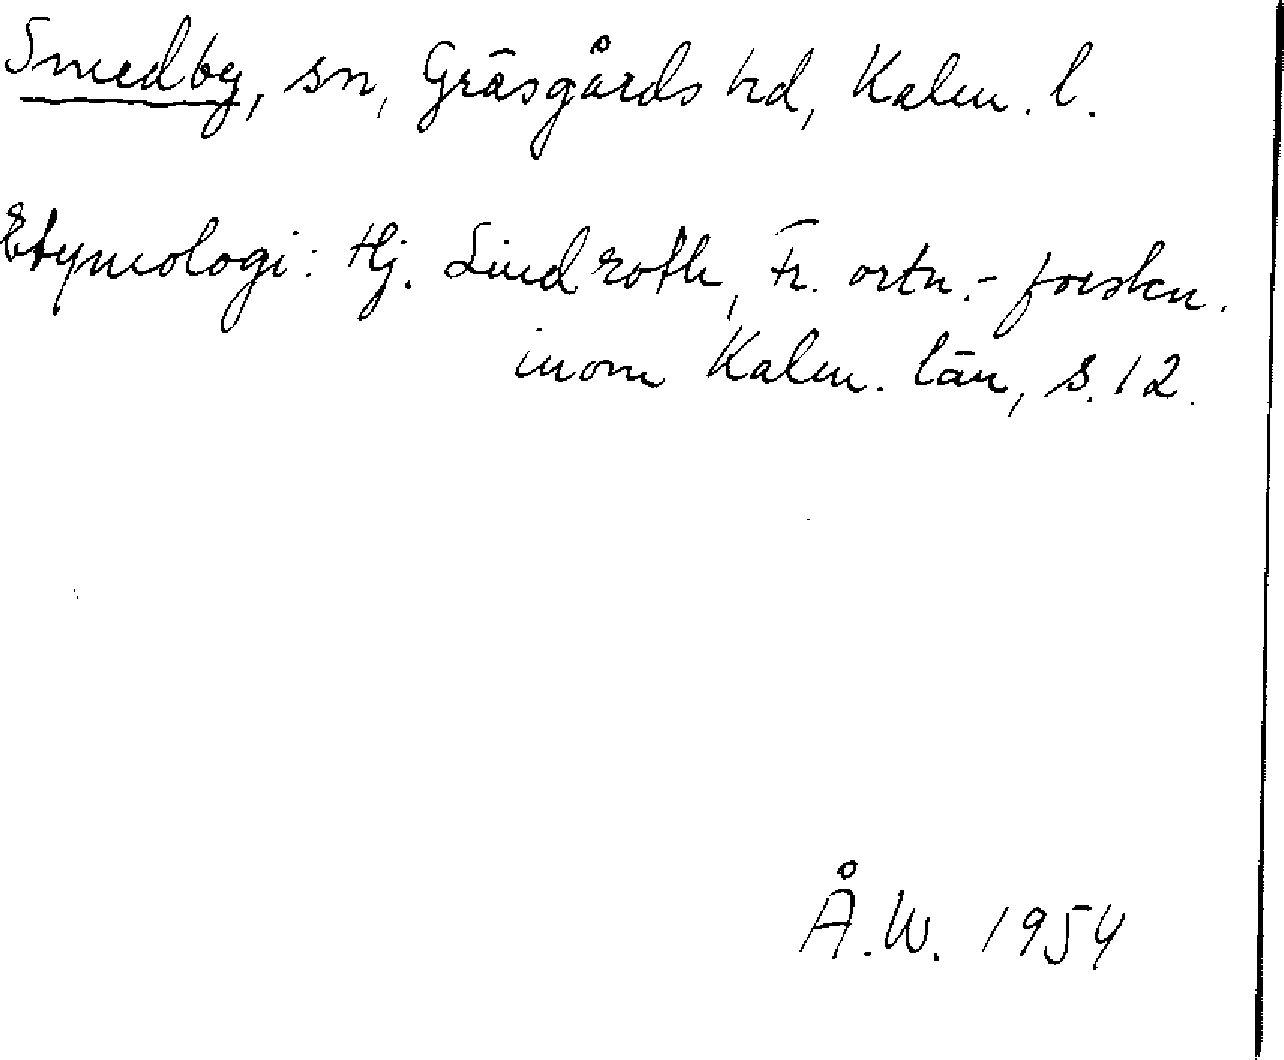 Smedby, sn, Gräsgårds hd, Kalm. l.
Etymologi: Hj. Lindroth, Fr. ortn.-forskn.
inom Kalm. län, s. 12.
Å.W. 1954